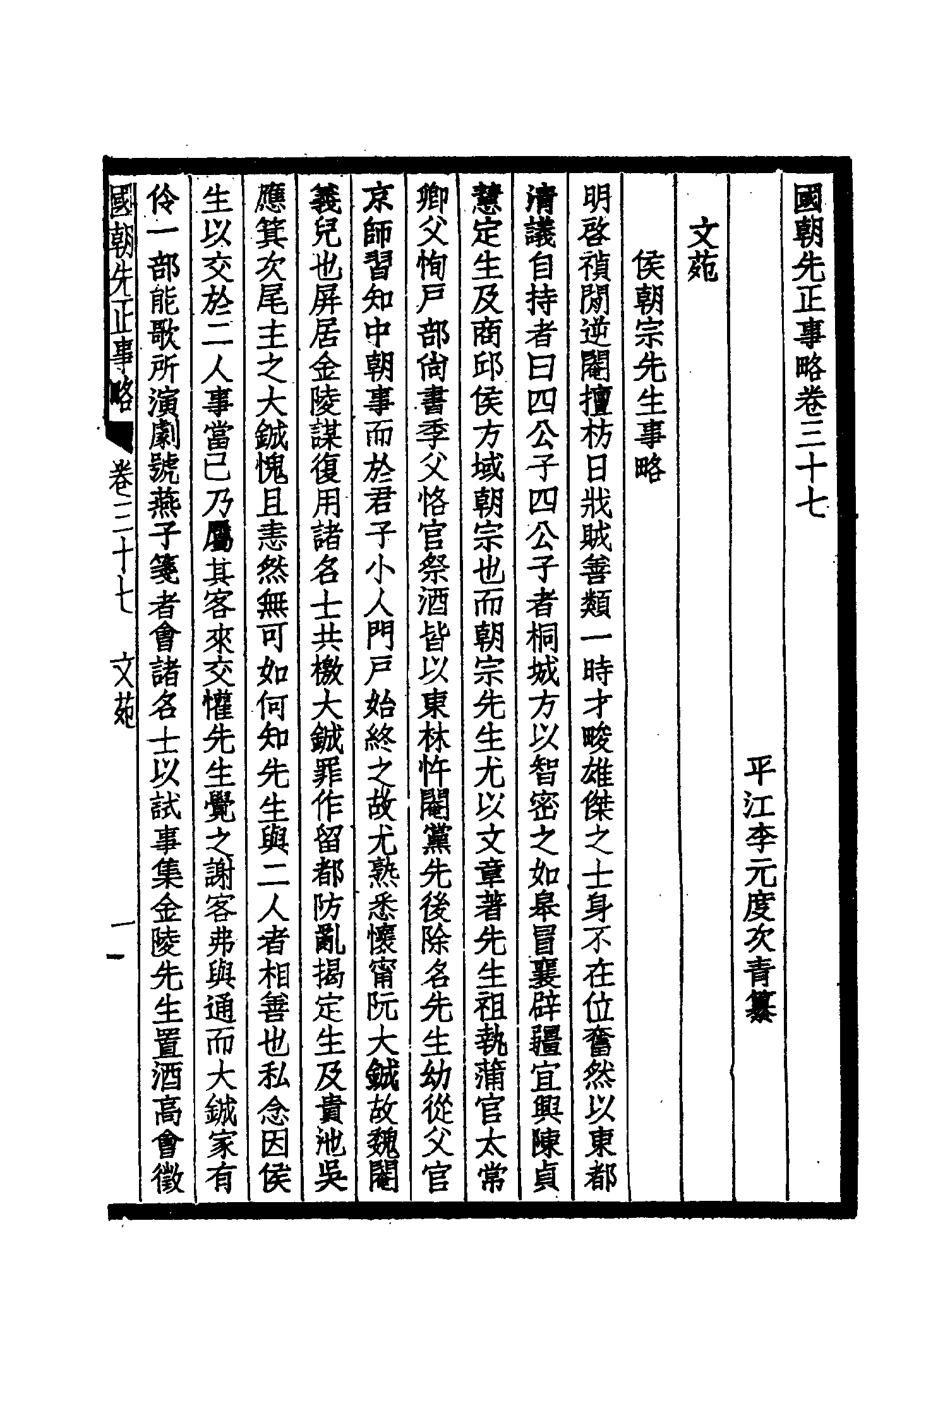 國朝先正事略卷三十七
平江李元度次青纂
文苑
侯朝宗先生事略
明啓禎閒逆閹擅枋日戕賊善類一時才畯雄傑之士身不在位奮然以東都
清議自持者曰四公子四公子者桐城方以智密之如皋冒襄辟疆宜興陳貞
慧定生及商邱侯方域朝宗也而朝宗先生尤以文章著先生祖執蒲官太常
卿父恂戶部尙書季父恪官祭酒皆以東林忤閹黨先後除名先生幼從父官
京師習知中朝事而於君子小人門戶始終之故尤熟悉懷甯阮大鋮故魏閹
義兒也屏居金陵謀復用諸名士共檄大鋮罪作留都防亂揭定生及貴池吳
應箕次尾主之大鋮愧且恚然無可如何知先生與二人者相善也私念因侯
生以交於二人事當已乃屬其客來交懽先生覺之謝客弗與通而大鋮家有
伶一部能歌所演劇號燕子箋者會諸名士以試事集金陵先生置酒高會徵
國朝先正事略 卷三十七 文苑 一